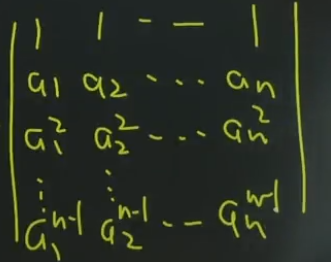 | 1 1 - — 1 |
a₁ a₂ ... aₙ
a₁² a₂² ... aₙ²
⋮ ⋮
a₁ⁿ⁻¹ a₂ⁿ⁻¹ ... aₙⁿ⁻¹